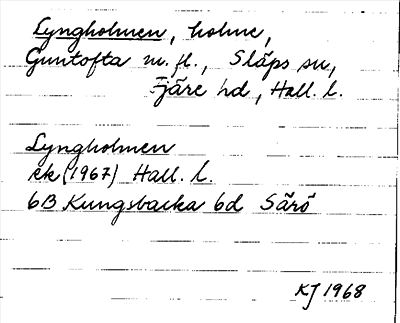 Lyngholmen, holme,
Guntofta m.fl., Släps sn,
Fjäre hd, Hall. l.
Lyngholmen
ek (1967) Hall. l.
6B Kungsbacka 6d Särö
KJ 1968